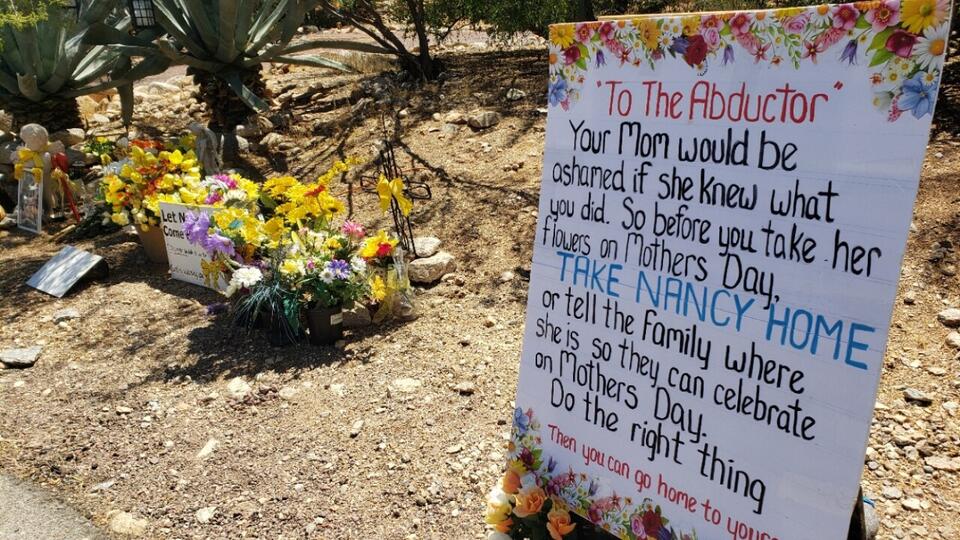 "To The Abductor"
Your Mom would be
ashamed if she knew what
you did. So before you take her
flowers on Mothers Day,
TAKE NANCY HOME
or tell the Family where
she is so they can celebrate
on Mothers Day.
Do the right thing
Then you can go home to
Let
Come